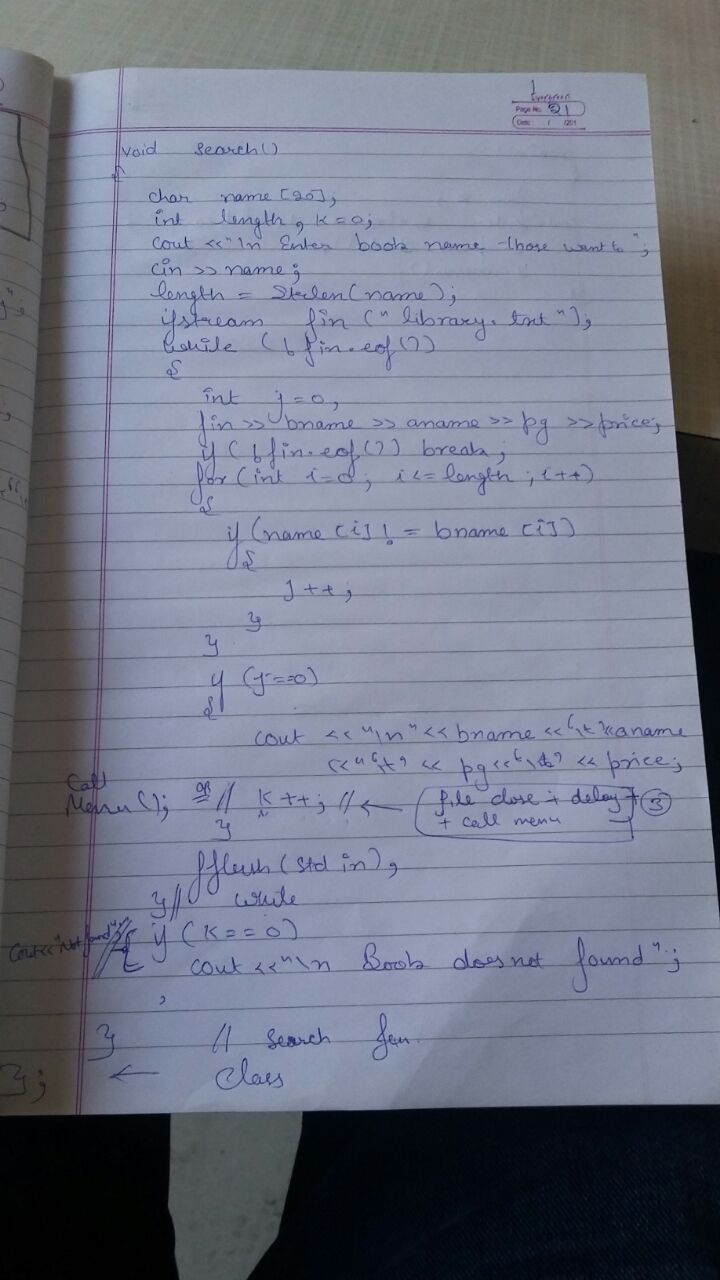 Page No. 21
Date: / /201
void search()
{
char name [20];
int length, k=0;
cout <<"\n Enter book name those want to";
cin >> name;
length = Strlen(name);
ifstream fin ("library.txt");
while (! fin.eof())
{
int j=0;
fin>> bname >> aname >> pg >>price;
if (! fin.eof()) break;
for (int i=0; i<=length; i++)
{
if (name [i] != bname [i])
{
J++;
}
}
if (j==0)
{
cout <<"\n"<<bname <<'\t'<<aname
<<"'\t' << pg<<'\t' << price;
Call
Menu(); OR // k++; // ← file close + delay + 3
+ call menu
}
fflush(std in);
}// while
Cout<<"Not found"; // { if (k==0)
cout <<"\n Book does not found";
,
} // search fun.
}; ← Class